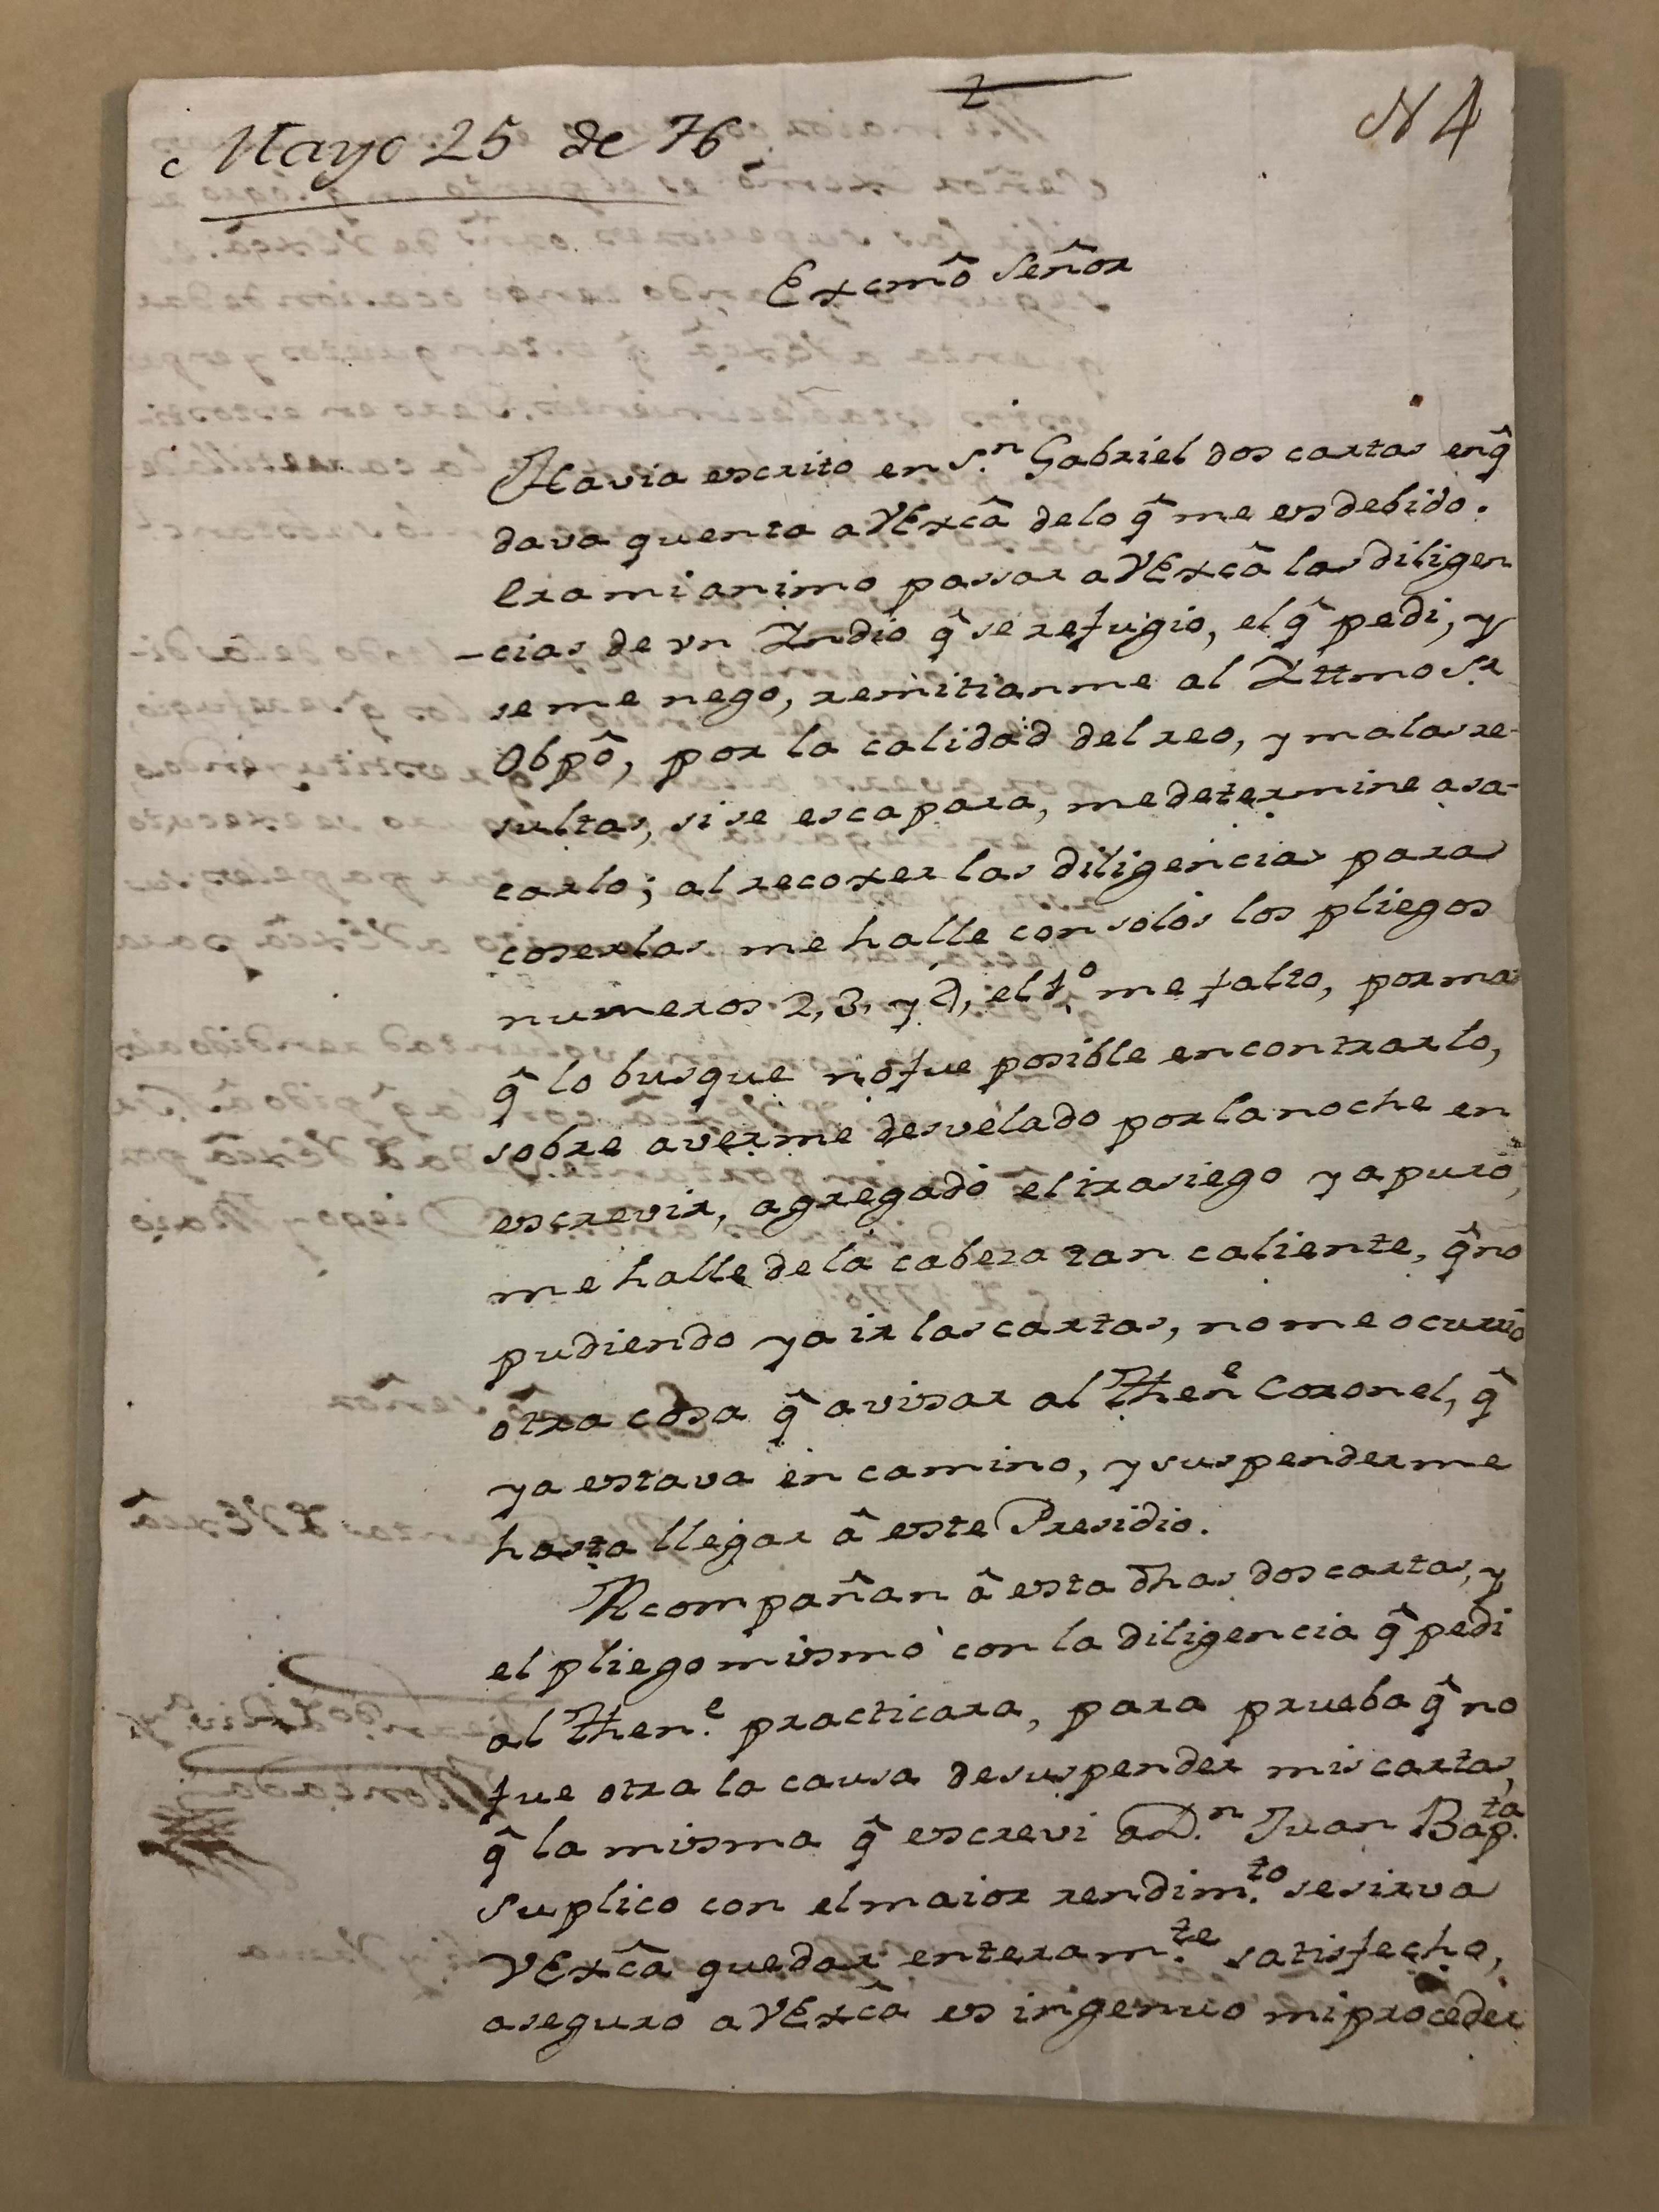 2
N 4
Mayo 25 de 76
Excmô Señor
Havia escrito en S.n Gabriel dos cartas enq̂
dava quenta aVExcâ delo q̂ me esdebido.
Era mi animo passar aVExcâ lasdiligen
-cias de vn Indio q̂ se refugio, elq̂ pedi, y
seme nego, remitianme al Illmo S.r
Obpô, por la calidad del reo, ymalasre-
sultas, sise escapara, medetermine asa-
carlo; alrecoxer las diligencias para
coserlas me halle consolos los pliegos
numeros 2, 3, y 4, el 1.o me falto, pormas
q̂ lo busque nofue posible encontrarlo,
sobre averme desvelado porlanoche en
escrevir, agregado eltrasiego yapuro,
mehalle dela cabeza tan caliente, q̂no
pudiendo yair lascartas, nomeocurrio
otra cosa q̂ avisar al Then.e Coronel, q̂
yaestava en camino, ysuspenderme
hasta llegar â este Presidio.
Acompañan â esta dhas doscartas, y
el pliegomismo con la diligencia q̂ pedi
al Then.e practicara, para prueba q̂ no
fue otra la causa desuspender miscartas,
q̂ la misma q̂ escrevi aD.n Juan Bap.ta
Suplico con elmaior rendim.to sesirva
VExcâ quedar enteram.te satisfecho,
aseguro aVExcâ es ingenuo miproceder